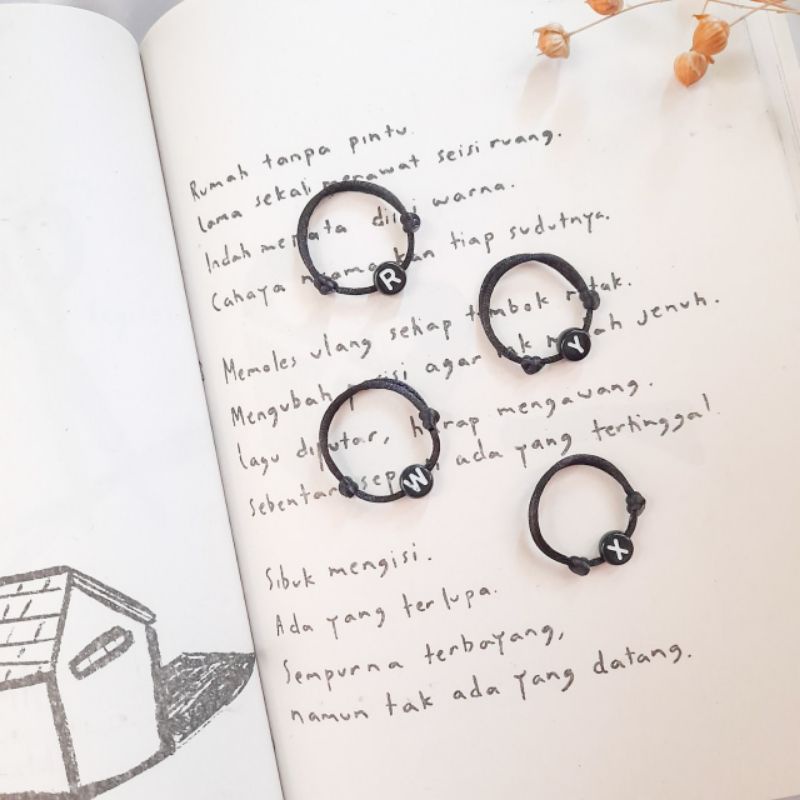 Rumah tanpa pintu.
lama sekali merawat seisi ruang.
Indah menata warna.
Cahaya tiap sudutnya.
Memoles ulang setiap tembok retak.
Mengubah agar tak jenuh.
lagu diputar, harap mengawang.
Sebentar ada yang tertinggal.
Sibuk mengisi.
Ada yang terlupa.
Sempurna terbayang,
namun tak ada yang datang.
R
Y
W
X